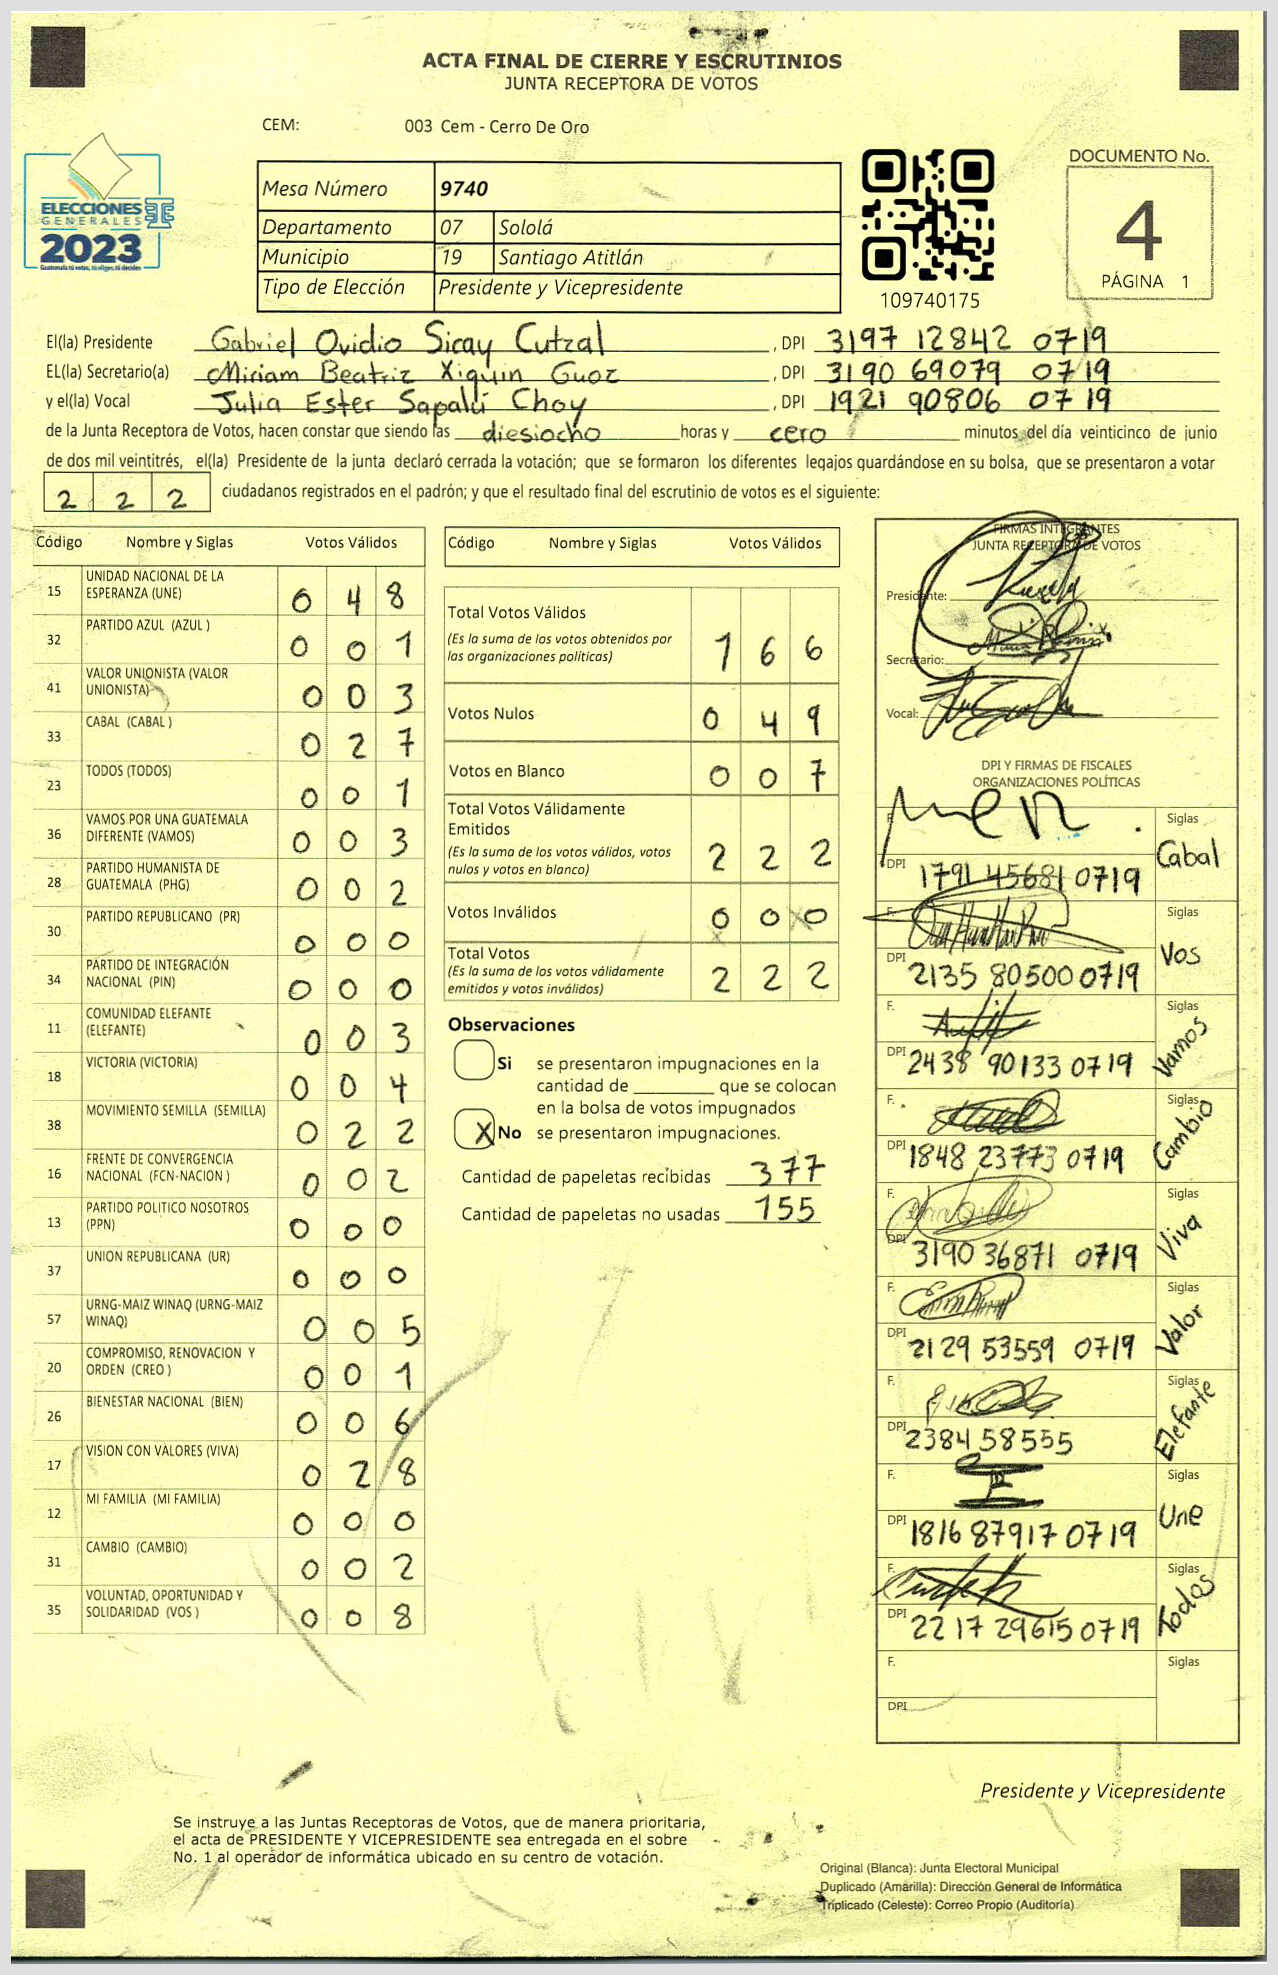 ACTA FINAL DE CIERRE Y ESCRUTINIOS
JUNTA RECEPTORA DE VOTOS
CEM: 003 Cem - Cerro De Oro
ELECCIONES
GENERALES
2023
Guatemala tú votas, tú eliges, tú decides
Mesa Número 9740
Departamento 07 Sololá
Municipio 19 Santiago Atitlán
Tipo de Elección Presidente y Vicepresidente
109740175
DOCUMENTO No.
4
PÁGINA 1
El(la) Presidente Gabriel Ovidio Sicay Cutzal , DPI 3197 12842 0719
EL(la) Secretario(a) Miriam Beatriz Xiquin Guoz , DPI 3190 69079 0719
y el(la) Vocal Julia Ester Sapalú Choy , DPI 1921 90806 0719
de la Junta Receptora de Votos, hacen constar que siendo las diesiocho horas y cero minutos del día veinticinco de junio
de dos mil veintitrés, el(la) Presidente de la junta declaró cerrada la votación; que se formaron los diferentes legajos guardándose en su bolsa, que se presentaron a votar
222 ciudadanos registrados en el padrón; y que el resultado final del escrutinio de votos es el siguiente:
Código Nombre y Siglas Votos Válidos
15 UNIDAD NACIONAL DE LA
ESPERANZA (UNE) 048
32 PARTIDO AZUL (AZUL ) 001
41 VALOR UNIONISTA (VALOR
UNIONISTA) 003
33 CABAL (CABAL ) 027
23 TODOS (TODOS) 001
36 VAMOS POR UNA GUATEMALA
DIFERENTE (VAMOS) 003
28 PARTIDO HUMANISTA DE
GUATEMALA (PHG) 002
30 PARTIDO REPUBLICANO (PR) 000
34 PARTIDO DE INTEGRACIÓN
NACIONAL (PIN) 000
11 COMUNIDAD ELEFANTE
(ELEFANTE) 003
18 VICTORIA (VICTORIA) 004
38 MOVIMIENTO SEMILLA (SEMILLA) 022
16 FRENTE DE CONVERGENCIA
NACIONAL (FCN-NACION ) 002
13 PARTIDO POLITICO NOSOTROS
(PPN) 000
37 UNION REPUBLICANA (UR) 000
57 URNG-MAIZ WINAQ (URNG-MAIZ
WINAQ) 005
20 COMPROMISO, RENOVACION Y
ORDEN (CREO ) 001
26 BIENESTAR NACIONAL (BIEN) 006
17 VISION CON VALORES (VIVA) 028
12 MI FAMILIA (MI FAMILIA) 000
31 CAMBIO (CAMBIO) 002
35 VOLUNTAD, OPORTUNIDAD Y
SOLIDARIDAD (VOS ) 008
Código Nombre y Siglas Votos Válidos
Total Votos Válidos 166
(Es la suma de los votos obtenidos por
las organizaciones políticas)
Votos Nulos 049
Votos en Blanco 007
Total Votos Válidamente
Emitidos 222
(Es la suma de los votos válidos, votos
nulos y votos en blanco)
Votos Inválidos 000
Total Votos 222
(Es la suma de los votos válidamente
emitidos y votos inválidos)
Observaciones
Si se presentaron impugnaciones en la
cantidad de ________ que se colocan
en la bolsa de votos impugnados
X No se presentaron impugnaciones.
Cantidad de papeletas recibidas 377
Cantidad de papeletas no usadas 155
FIRMAS INTEGRANTES
JUNTA RECEPTORA DE VOTOS
Presidente:
Secretario:
Vocal:
DPI Y FIRMAS DE FISCALES
ORGANIZACIONES POLÍTICAS
F. Siglas
DPI 1791 45681 0719 Cabal
F. Siglas
DPI 2135 80500 0719 Vos
F. Siglas
DPI 2438 90133 0719 Vamos
F. Siglas
DPI 1848 23773 0719 Cambio
F. Siglas
DPI 3190 36871 0719 Viva
F. Siglas
DPI 2129 53559 0719 Valor
F. Siglas
DPI 2384 58555 Elefante
F. Siglas
DPI 1816 87917 0719 Une
F. Siglas
DPI 2217 29615 0719 Todos
F. Siglas
DPI
Presidente y Vicepresidente
Se instruye a las Juntas Receptoras de Votos, que de manera prioritaria,
el acta de PRESIDENTE Y VICEPRESIDENTE sea entregada en el sobre
No. 1 al operador de informática ubicado en su centro de votación.
Original (Blanca): Junta Electoral Municipal
Duplicado (Amarilla): Dirección General de Informática
Triplicado (Celeste): Correo Propio (Auditoría)